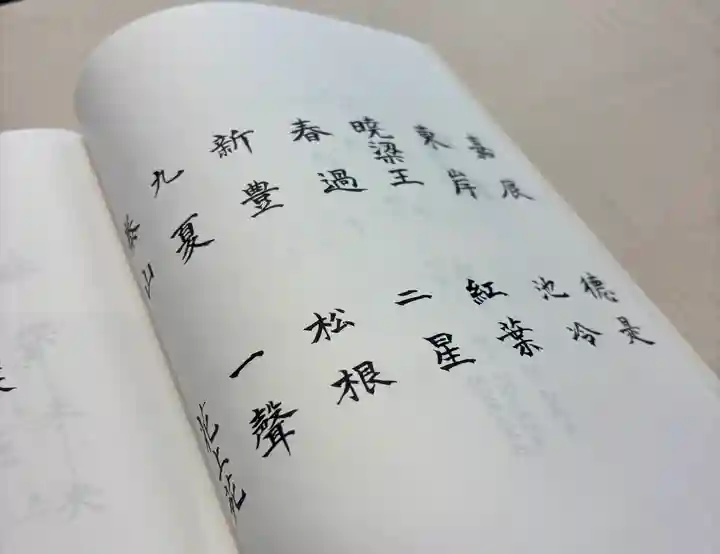 嘉辰
德是
東岸
池冷
暁梁王
紅葉
春過
二星
新豊
松根
九夏
一聲
山
花上苑